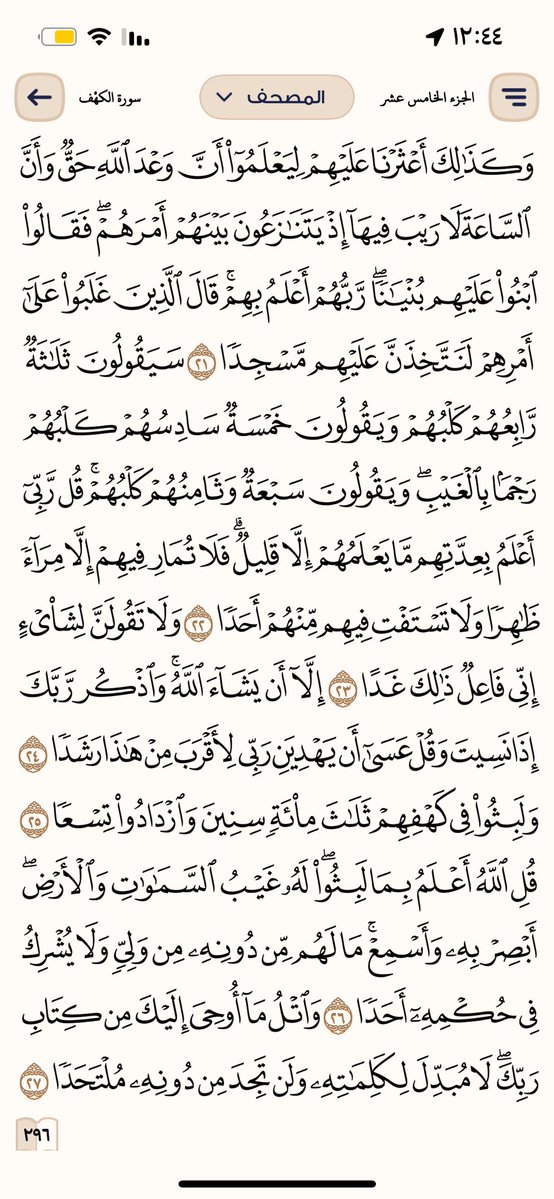 ١٢:٤٤
الجزء الخامس عشر المصحف سورة الكهف
وَكَذَٰلِكَ أَعۡثَرۡنَا عَلَيۡهِمۡ لِيَعۡلَمُوٓاْ أَنَّ وَعۡدَ ٱللَّهِ حَقّٞ وَأَنَّ
ٱلسَّاعَةَ لَا رَيۡبَ فِيهَآ إِذۡ يَتَنَٰزَعُونَ بَيۡنَهُمۡ أَمۡرَهُمۡۖ فَقَالُواْ
ٱبۡنُواْ عَلَيۡهِم بُنۡيَٰنٗاۖ رَّبُّهُمۡ أَعۡلَمُ بِهِمۡۚ قَالَ ٱلَّذِينَ غَلَبُواْ عَلَىٰٓ
أَمۡرِهِمۡ لَنَتَّخِذَنَّ عَلَيۡهِم مَّسۡجِدٗا ٢١ سَيَقُولُونَ ثَلَٰثَةٞ
رَّابِعُهُمۡ كَلۡبُهُمۡ وَيَقُولُونَ خَمۡسَةٞ سَادِسُهُمۡ كَلۡبُهُمۡ
رَجۡمَۢا بِٱلۡغَيۡبِۖ وَيَقُولُونَ سَبۡعَةٞ وَثَامِنُهُمۡ كَلۡبُهُمۡۚ قُل رَّبِّيٓ
أَعۡلَمُ بِعِدَّتِهِم مَّا يَعۡلَمُهُمۡ إِلَّا قَلِيلٞۗ فَلَا تُمَارِ فِيهِمۡ إِلَّا مِرَآءٗ
ظَٰهِرٗا وَلَا تَسۡتَفۡتِ فِيهِم مِّنۡهُمۡ أَحَدٗا ٢٢ وَلَا تَقُولَنَّ لِشَاْيۡءٍ
إِنِّي فَاعِلٞ ذَٰلِكَ غَدًا ٢٣ إِلَّآ أَن يَشَآءَ ٱللَّهُۚ وَٱذۡكُر رَّبَّكَ
إِذَا نَسِيتَ وَقُلۡ عَسَىٰٓ أَن يَهۡدِيَنِ رَبِّي لِأَقۡرَبَ مِنۡ هَٰذَا رَشَدٗا ٢٤
وَلَبِثُواْ فِي كَهۡفِهِمۡ ثَلَٰثَ مِاْئَةٖ سِنِينَ وَٱزۡدَادُواْ تِسۡعٗا ٢٥
قُلِ ٱللَّهُ أَعۡلَمُ بِمَا لَبِثُواْۖ لَهُۥ غَيۡبُ ٱلسَّمَٰوَٰتِ وَٱلۡأَرۡضِۖ
أَبۡصِرۡ بِهِۦ وَأَسۡمِعۡۚ مَا لَهُم مِّن دُونِهِۦ مِن وَلِيّٖ وَلَا يُشۡرِكُ
فِي حُكۡمِهِۦٓ أَحَدٗا ٢٦ وَٱتۡلُ مَآ أُوحِيَ إِلَيۡكَ مِن كِتَابِ
رَبِّكَۖ لَا مُبَدِّلَ لِكَلِمَٰتِهِۦ وَلَن تَجِدَ مِن دُونِهِۦ مُلۡتَحَدٗا ٢٧
٢٩٦